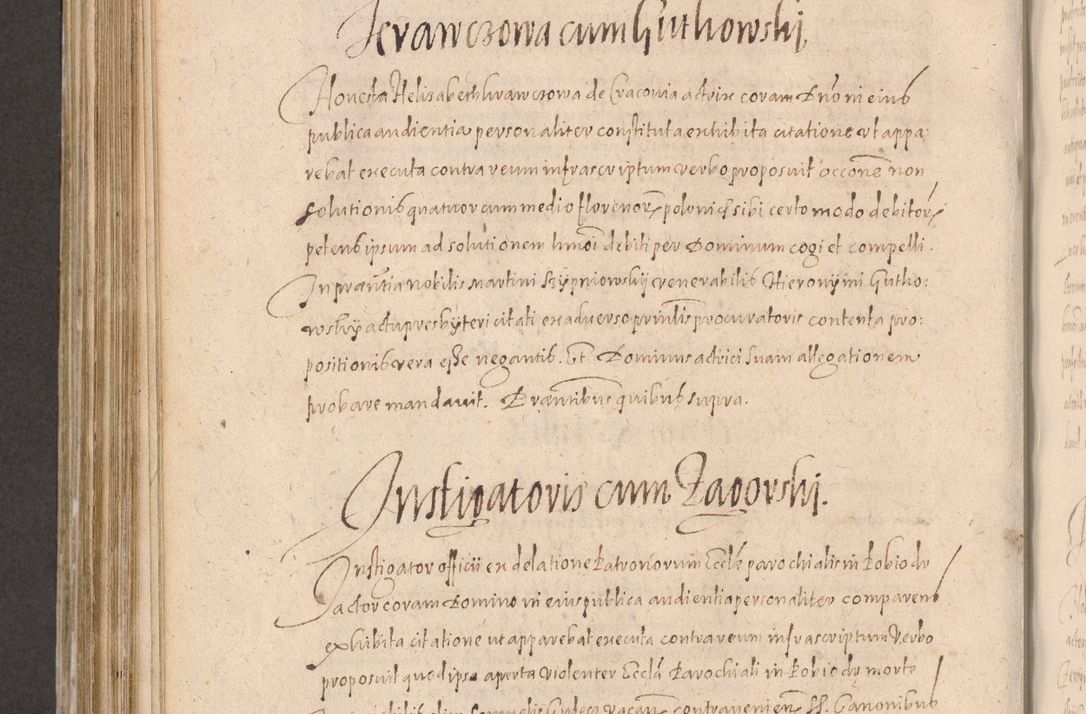 Krawczowa cum Guthowski.
Honesta Helisabeth krawczowa de Cracovia actrix coram Dño in eius
publica audientia personaliter constituta exhibita citatione ut appa:
rebat executa contra reum infrascriptum verbo proposuit occõne non
solutionis quatuor cum medio florenor poloni sibi certo modo debitor
petens ipsum ad solutionem hmõi debiti per Dominum cogi et compelli.
In præntia nobilis Martini venerabilis Hieronÿmi Gutho:
wskÿ actu presbÿteri citati ex adverso prinlis procuratoris contenta pro:
positionis vera esse negantis. Et Dominus actrici suam allegationem
probare mandavit. Præntibus quibus supra.
Instigatoris cum Zagorski.
Instigator officii ex delatione Patronorum Ecclæ parochialis in
actor coram Domino in eius publica audientia personaliter comparens
exhibita citatione ut apparebat executa contra reum infrascriptum verbo
proposuit quod ipse aperta violenter Ecclã Parochiali in morte
contravenien SS. Canonibus